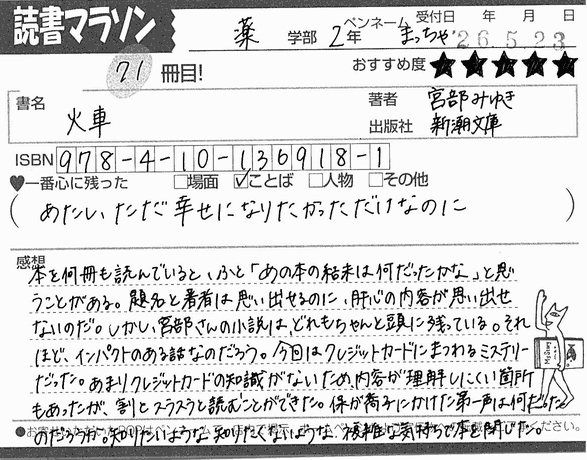 読書マラソン
薬 学部 2年 ペンネーム まっちゃ 受付日 年 月 日
26.5.23
71 冊目! おすすめ度 ★★★★★
書名 火車 著者 宮部みゆき
出版社 新潮文庫
ISBN 978-4-10-136918-1
♥一番心に残った □場面 ☑ことば □人物 □その他
( あたし、ただ幸せになりたかっただけなのに )
感想
本を何冊も読んでいると、ふと「あの本の結末は何だったかな」と思
うことがある。題名と著者は思い出せるのに、肝心の内容が思い出せ
ないのだ。しかし、宮部さんの小説は、どれもちゃんと頭に残っている。それ
ほど、インパクトのある話なのだろう。今回はクレジットカードにまつわるミステリー
だった。あまりクレジットカードの知識がないため、内容が理解しにくい箇所
もあったが、割とスラスラと読むことができた。保が喬子にかけた第一声は何だった
のだろうか。知りたいような知りたくないような、複雑な気持ちで本を閉じた。